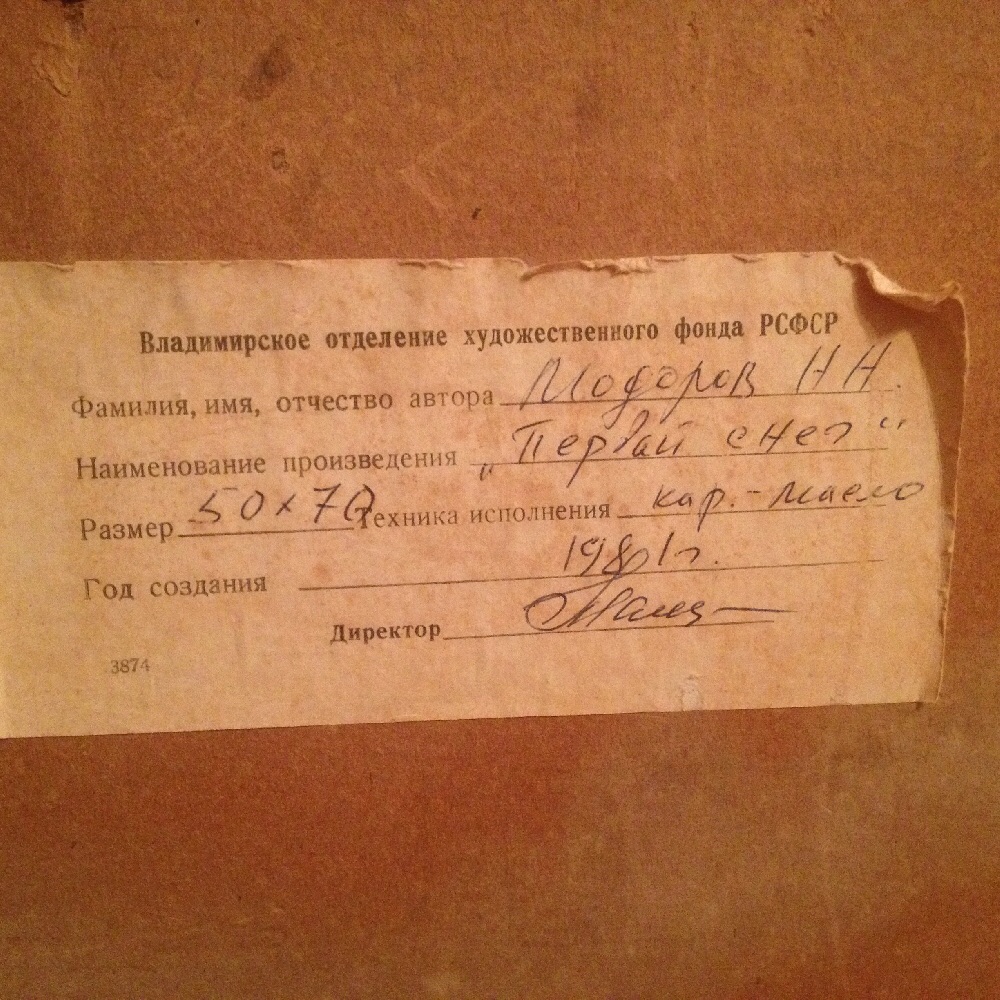 Владимирское отделение художественного фонда РСФСР
Фамилия, имя, отчество автора Модоров Н Н.
Наименование произведения „Первый снег“
Размер 50 х 70 Техника исполнения кар. - масло
Год создания 1981 г.
Директор
3874